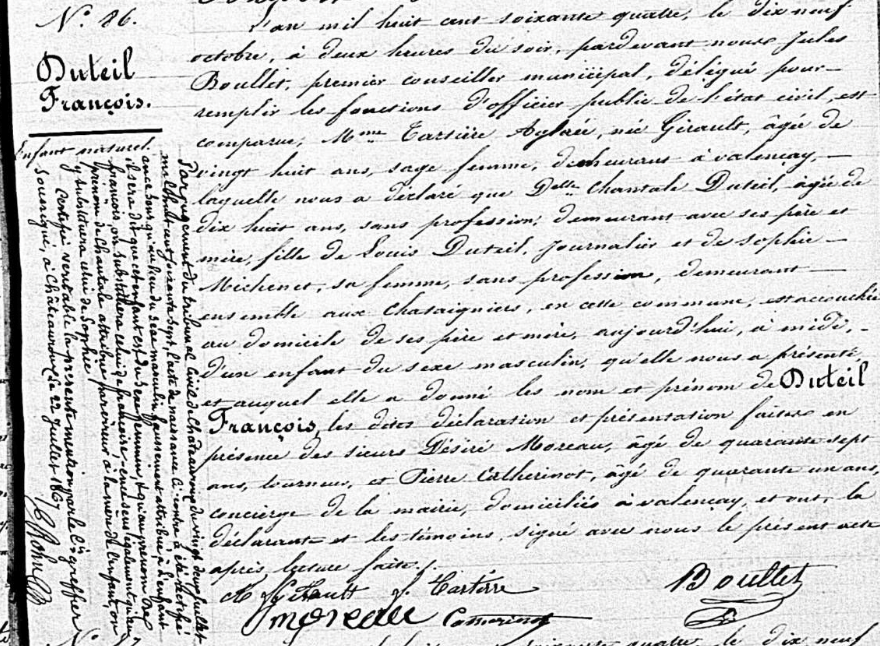 N.º 86.
Duteil
François.
Enfant naturel.
L'an mil huit cent soixante quatre, le dix neuf
octobre, à deux heures du soir, pardevant nous Jules
Boullet, premier conseiller municipal, délégué pour
remplir les fonctions d'officier public de l'état civil, est
comparue, Mme Tarsière Aglaée, née Girault, âgée de
vingt huit ans, sage femme, demeurant à valençay,
laquelle nous a déclaré que Delle Chantale Duteil, âgée de
dix huit ans, sans profession, demeurant avec ses père et
mère, fille de Louis Duteil, Journalier et de Sophie
Michenet, sa femme, sans profession, demeurant
ensemble aux Chataigniers, en cette commune, est accouchée
au domicile de ses père et mère, aujourd'hui, à midi,
d'un enfant du sexe masculin, qu'elle nous a présenté,
et auquel elle a donné les nom et prénom de Duteil
François, les dites déclaration et présentation faites en
présence des sieurs Désiré Moreau, âgé de quarante sept
ans, tourneur, et Pierre Catherinot, âgé de quarante un ans,
concierge de la mairie, domiciliés à valençay, et ont, la
déclarante et les témoins, signé avec nous le présent acte
après lecture faite.
Girault f. Tarsière
Boullet
moreau
Par jugement du tribunal civil de Châteauroux du vingt deux juillet
mil huit cent soixante sept, l'acte de naissance ci contre a été rectifié
en ce sens qu'au lieu du sexe masculin faussement attribué à l'enfant
il sera dit que cet enfant est du sexe féminin, et qu'au prénom de
françois on substituera celui de françoise, en ce sens également qu'au
prénom de Chantale attribué par erreur à la mère de l'enfant, on
y substituera celui de Sophie
Certifié véritable la présente mention par le Cis greffier
soussigné, à Châteauroux, le 22 juillet 1867
soixante quatre, le dix neuf